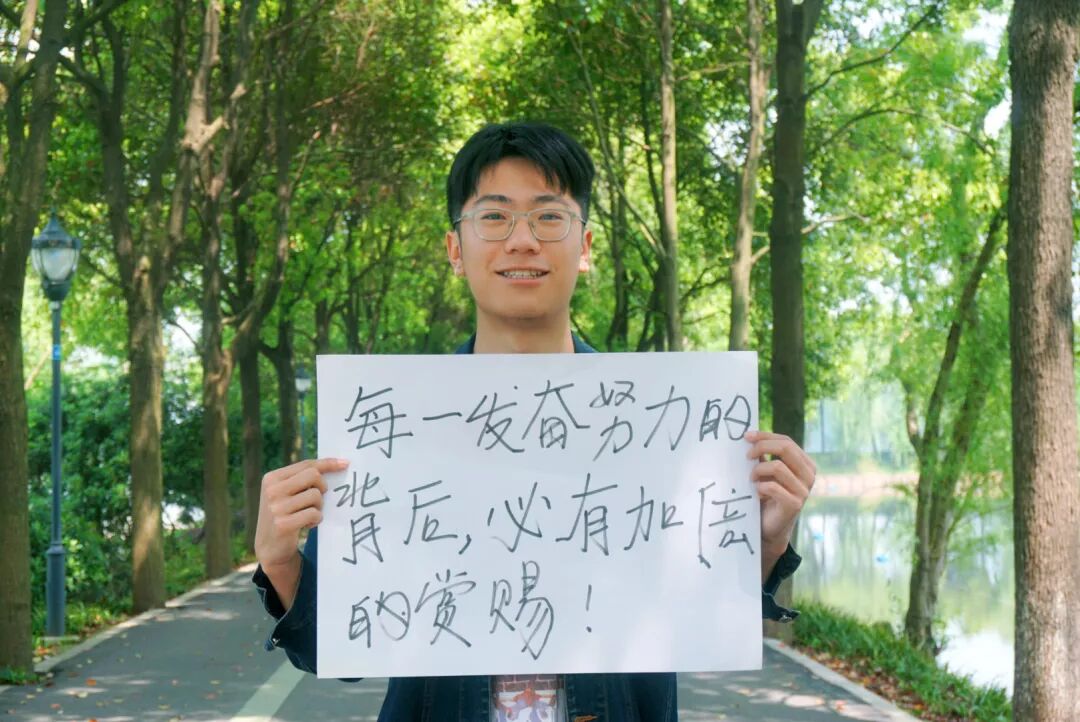 每一发奋努力的
背后,必有加倍
的赏赐!